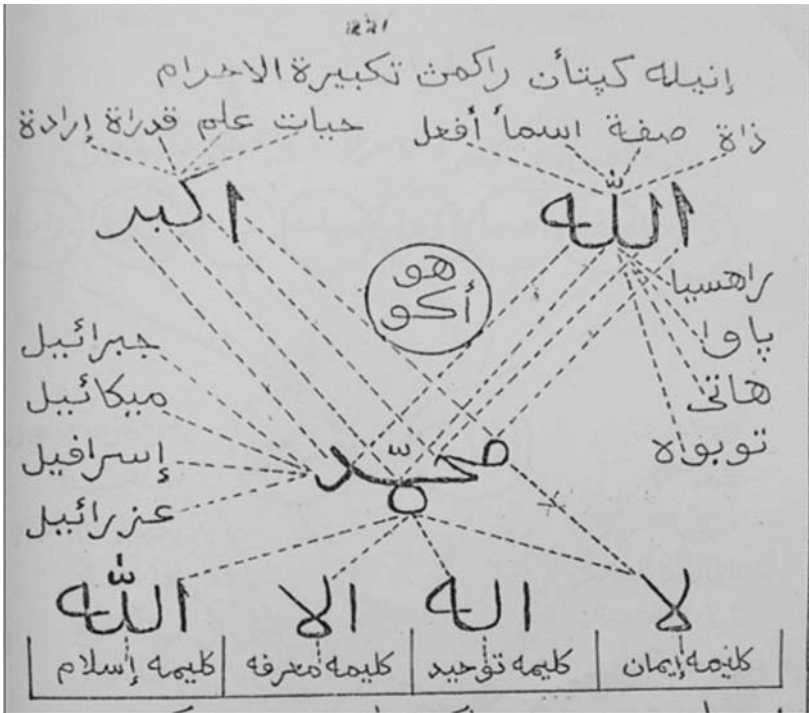 إنيله كڽتأن راكمن تكبيرة الاحرام
ذاة صفة اسمأ أفعل حيات علم قدراة إرادة
الله اكبر
هو
أكو
راهسيا
ڽاوا
هاتى
توبوه
جبرائيل
ميكائيل
إسرافيل
عزرائيل
محمّد
لا اله الا الله
كليمه إيمان كليمه توحيد كليمه معرفه كليمه إسلام